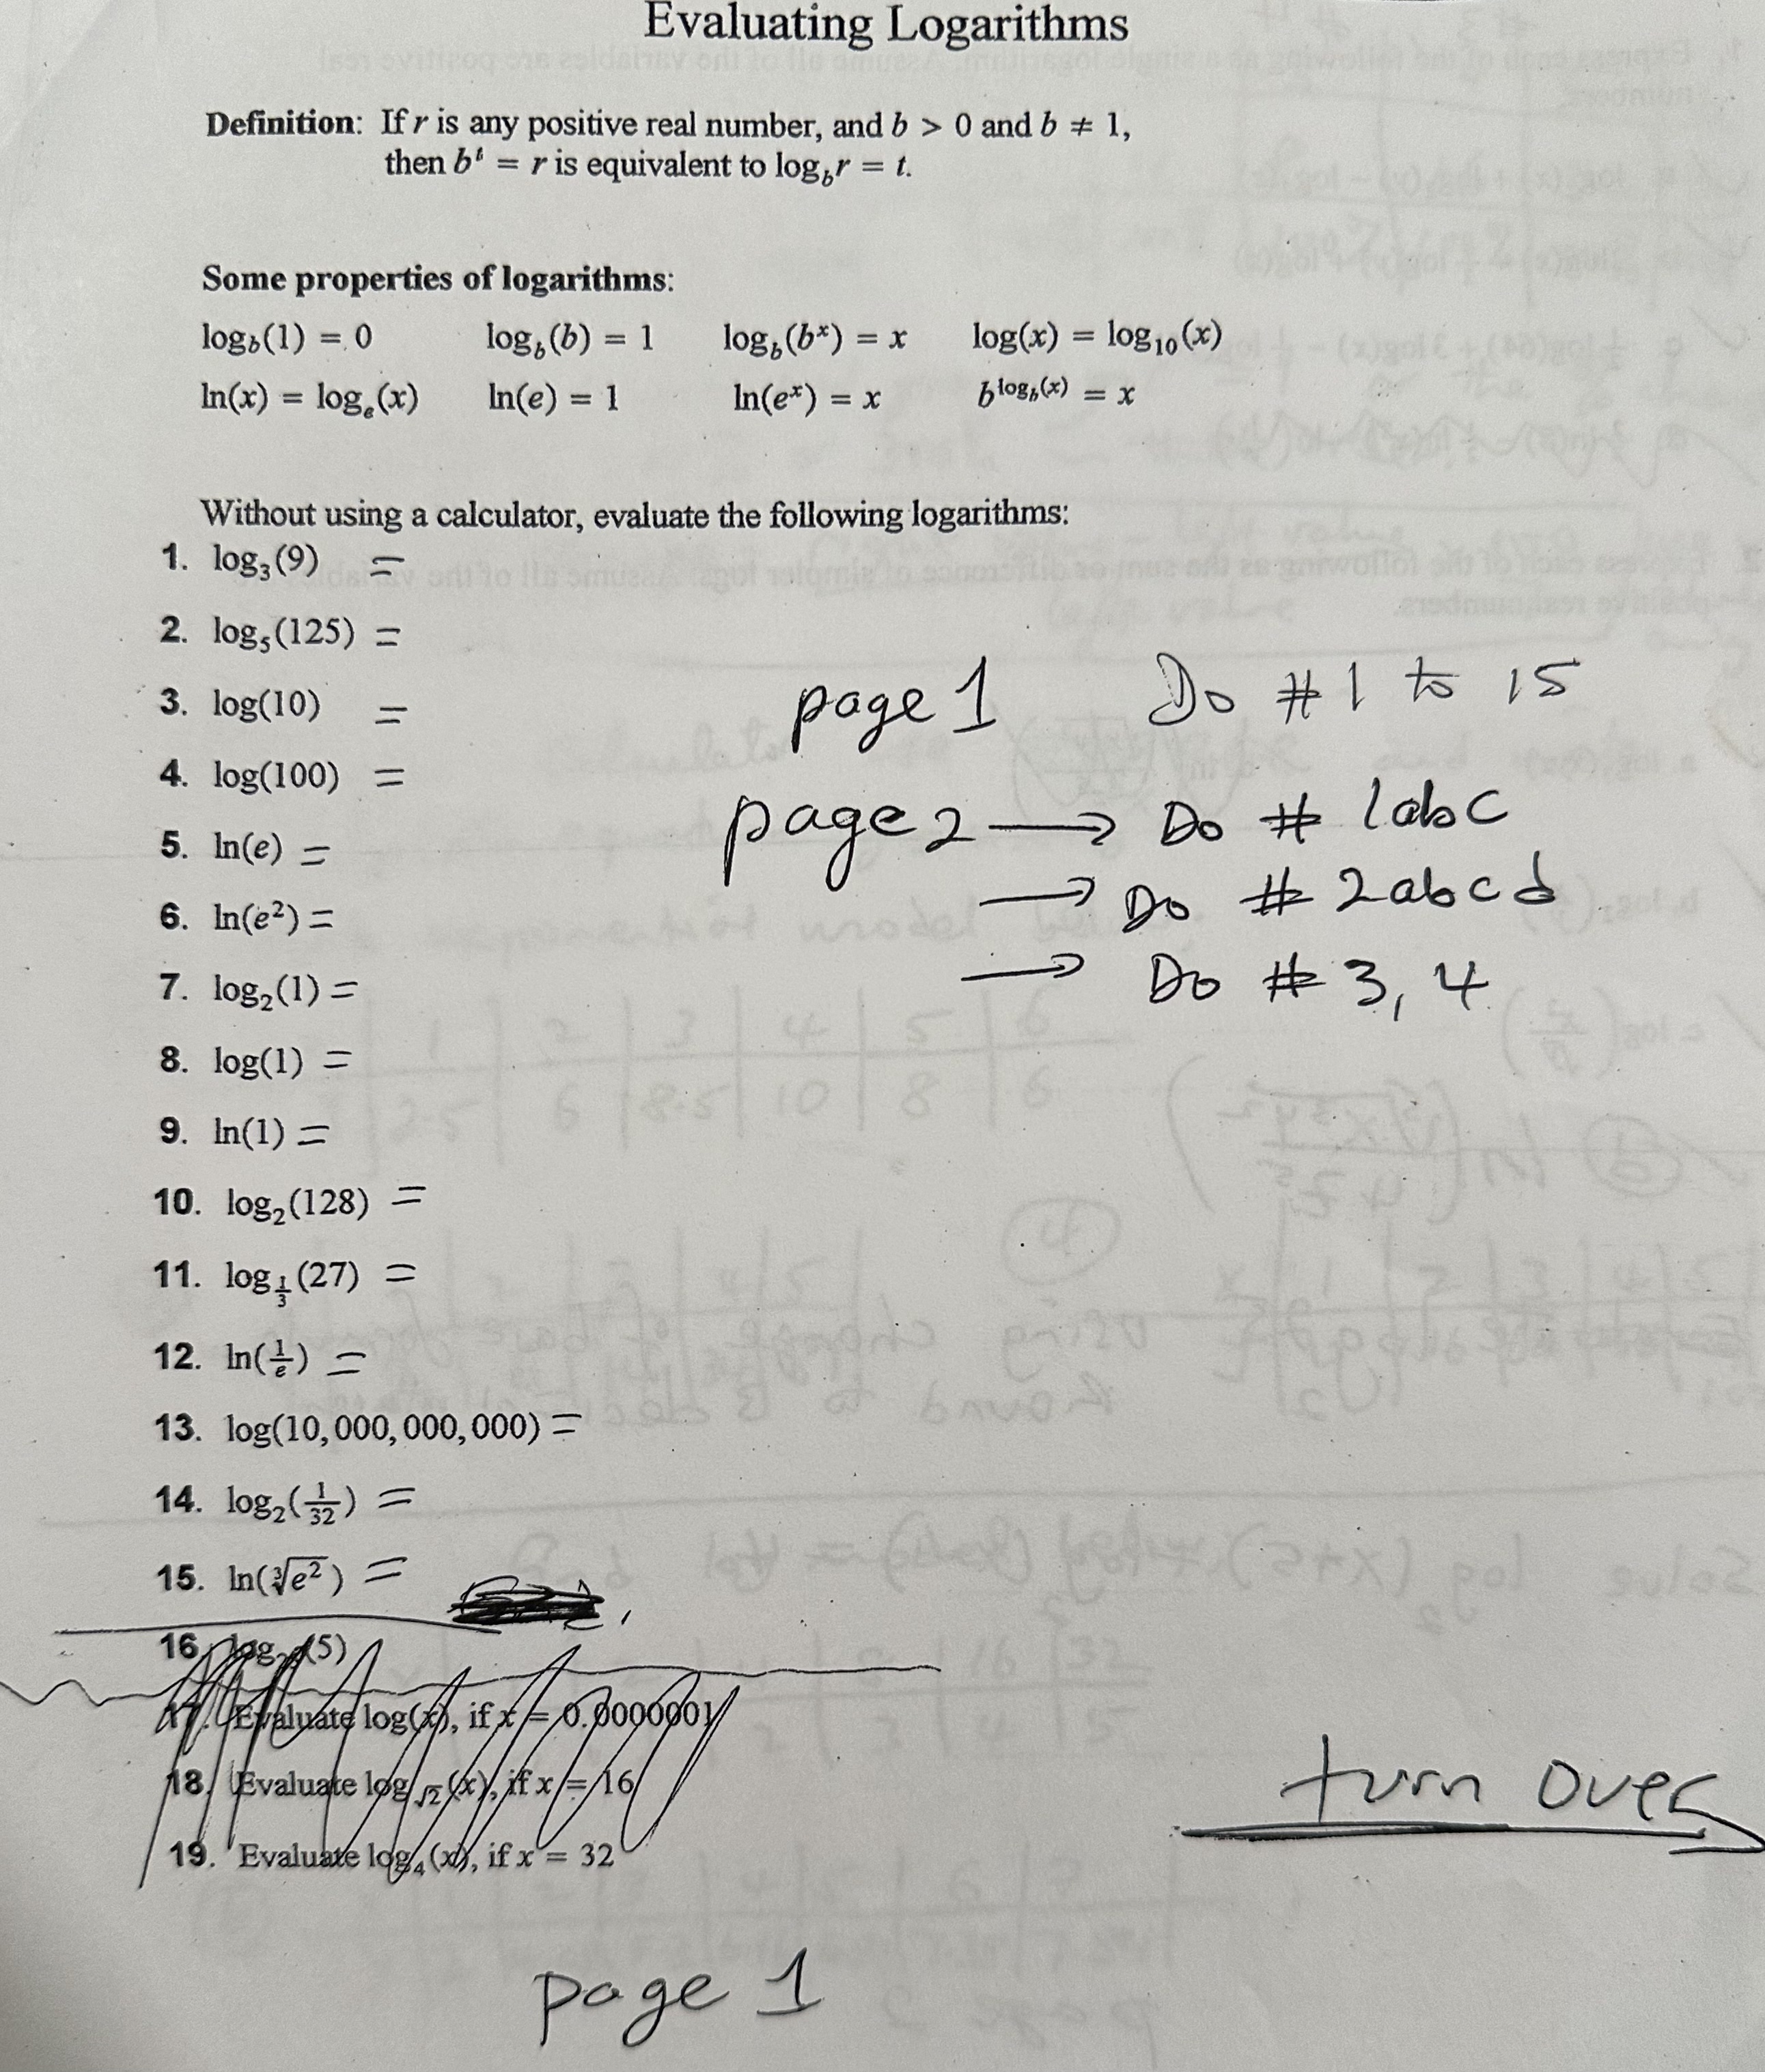 Evaluating Logarithms
Definition: If r is any positive real number, and b > 0 and b ≠ 1,
then bᵗ = r is equivalent to log_b r = t.
Some properties of logarithms:
log_b(1) = 0 log_b(b) = 1 log_b(bˣ) = x log(x) = log₁₀(x)
ln(x) = logₑ(x) ln(e) = 1 ln(eˣ) = x b^(log_b(x)) = x
Without using a calculator, evaluate the following logarithms:
1. log₃(9) =
2. log₅(125) =
3. log(10) =
4. log(100) =
5. ln(e) =
6. ln(e²) =
7. log₂(1) =
8. log(1) =
9. ln(1) =
10. log₂(128) =
11. log_(1/3)(27) =
12. ln(1/e) =
13. log(10,000,000,000) =
14. log₂(1/32) =
15. ln(∛e²) =
page 1 Do # 1 to 15
page 2 → Do # 1abc
→ Do # 2abcd
→ Do # 3, 4
16. (5)
17. Evaluate log(x), if x = 0.0000001
18. Evaluate log_√2(x), if x = 16
19. Evaluate log₄(x), if x = 32
turn over
page 1